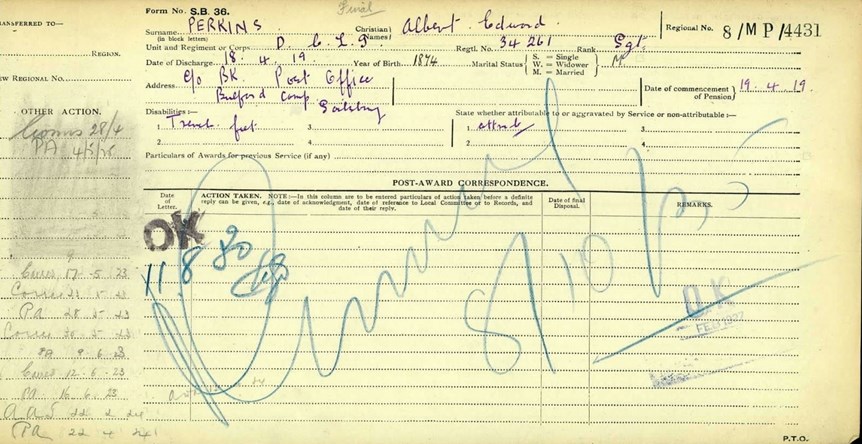 Form No. S.B. 36.
Final
TRANSFERRED TO—
Surname PERKINS
(in block letters)
Christian Names} Albert Edward
Regional No. 8/MP/4431
Unit and Regiment or Corps D. C. L. I.
Regtl. No. 34261 Rank Sgt.
REGION.
Date of Discharge 18. 4. 19. Year of Birth 1874 Marital Status { S. = Single
W. = Widower
M. = Married } M
NEW REGIONAL No.
Address c/o BK. Post Office
Bulford Camp Salisbury
Date of commencement of Pension} 19. 4. 19.
OTHER ACTION.
Disabilities:—
State whether attributable to or aggravated by Service or non-attributable:—
1. Trench feet 3.
1. attrib 3.
2. 4.
2. 4.
Comns 28/4
PA
Particulars of Awards for previous Service (if any)
POST-AWARD CORRESPONDENCE.
Date of Letter.
ACTION TAKEN. NOTE:—In this column are to be entered particulars of action taken before a definite
reply can be given, e.g., date of acknowledgment, date of reference to Local Committee or to Records, and
date of their reply.
Date of final Disposal.
REMARKS.
OK
11.8.30
O.K.
FEB 1927
17 . 5 . 23
PA 28 . 5 . 23
PA 9 6 23
12 . 6 . 23
PA 16 . 6 . 23
PA 22 4
P.T.O.